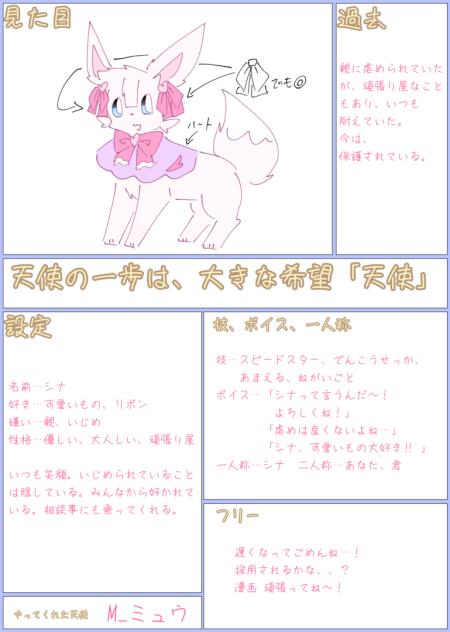 見た目
でも◎
ハート
過去
親に虐められていた
が、頑張り屋なこと
もあり、いつも
耐えていた。
今は、
保護されている。
天使の一歩は、大きな希望「天使」
設定
名前…シナ
好き…可愛いもの、リボン
嫌い…親、いじめ
性格…優しい、大人しい、頑張り屋
いつも笑顔。いじめられていること
は隠している。みんなから好かれて
いる。相談事にも乗ってくれる。
技、ボイス、一人称
技…スピードスター、でんこうせっか、
あまえる、ねがいごと
ボイス…「シナって言うんだ～！
よろしくね！」
「虐めは良くないよね…」
「シナ、可愛いもの大好き!! 」
一人称…シナ 二人称…あなた、君
フリー
遅くなってごめんね…！
採用されるかな、、？
漫画 頑張ってね～！
やってくれた天使
M_ミュウ